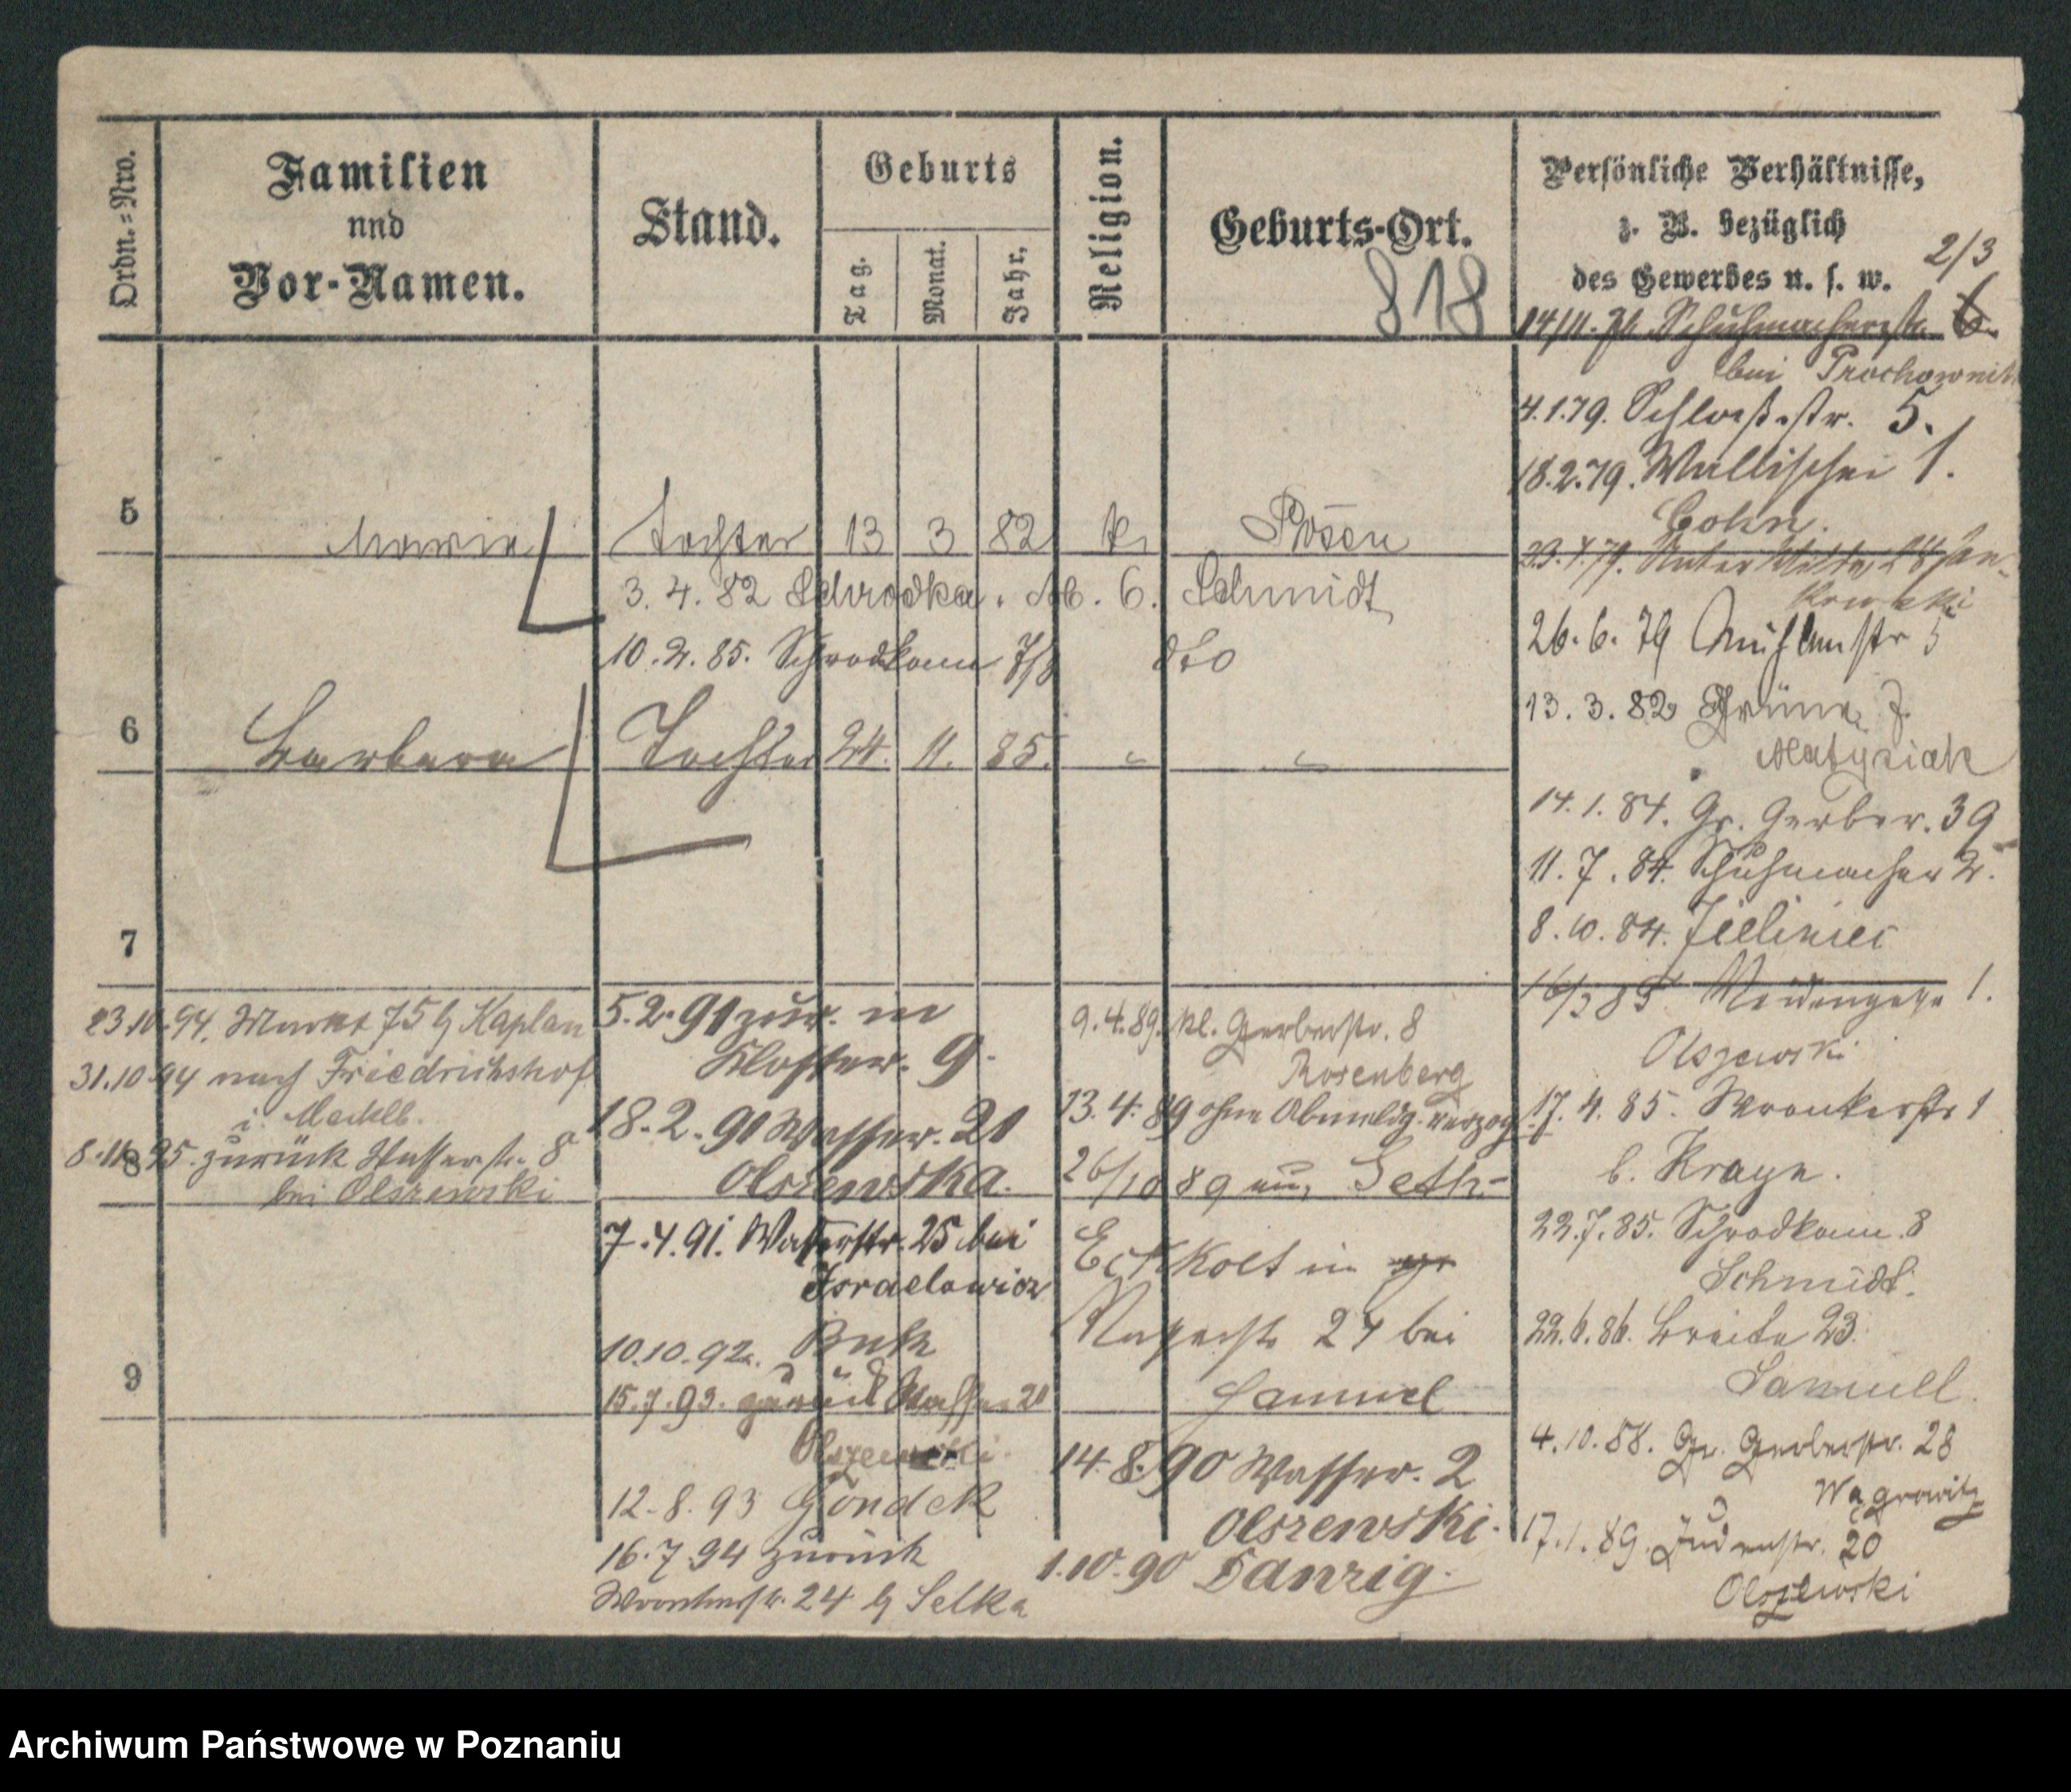 Ordn.=Nro.
Familien
und
Vor-Namen.
Stand.
Geburts
Tag.
Monat.
Jahr.
Religion.
Geburts-Ort.
818
Persönliche Verhältnisse,
z. B. bezüglich
des Gewerbes u. s. w.
2/3
14/11. Schuhmacherstr. 6.
bei Prochownik
4.1.79. Schloßstr. 5.
18.2.79. Wallischei 1.
Cohn.
26.6.79 Mühlenstr 5
13.3.82 Grüne 7.
Matysiak
14.1.84. Gr. Gerber. 39
11.7.84. Schuhmacher 2.
8.10.84. Jelinier
16/2 85 1.
Olszewski
17.4.85. Wronkerstr 1
b. Krayn.
22.7.85. Schrodkam. 8
Schmidt.
22.6.86. Breite 23.
Samuell.
4.10.88. Gr. Gerberstr. 28
Wagrowitz
17.1.89. Judenstr. 20
Olszewski
5 Marie Tochter 13 3 82 k. Posen
3.4.82 Schrodka. No. 6. Schmidt
10.2.85. Schrodkam 7/8 dto
6 Barbara Tochter 24. 11. 85. " "
7
23.10.94. Markt 75 b/ Kaplan
31.10.94 nach Friedrichshof
i. Mecklb.
8
8.11.95. zurück Wasserstr. 8
bei Olszewski
9
5.2.91 zur. in
Kloster. 9.
18.2.91 Wasser. 21
Olszewska.
7.4.91. Wasserstr. 25 bei
Israelowicz
10.10.92. Buk
15.7.93. zurück Wasser 21
Olszewski.
12.8.93 Gondek
16.7.94 zurück
Wronkerstr. 24 b/ Selka
9.4.89. Kl. Gerberstr. 8
Rosenberg
13.4.89 ohne Abmeldg. verzog.
26/10 89 aus
in
27 bei
Samuel
14.8.90 Wasser. 2
Olszewski.
1.10.90 Danzig.
Archiwum Państwowe w Poznaniu